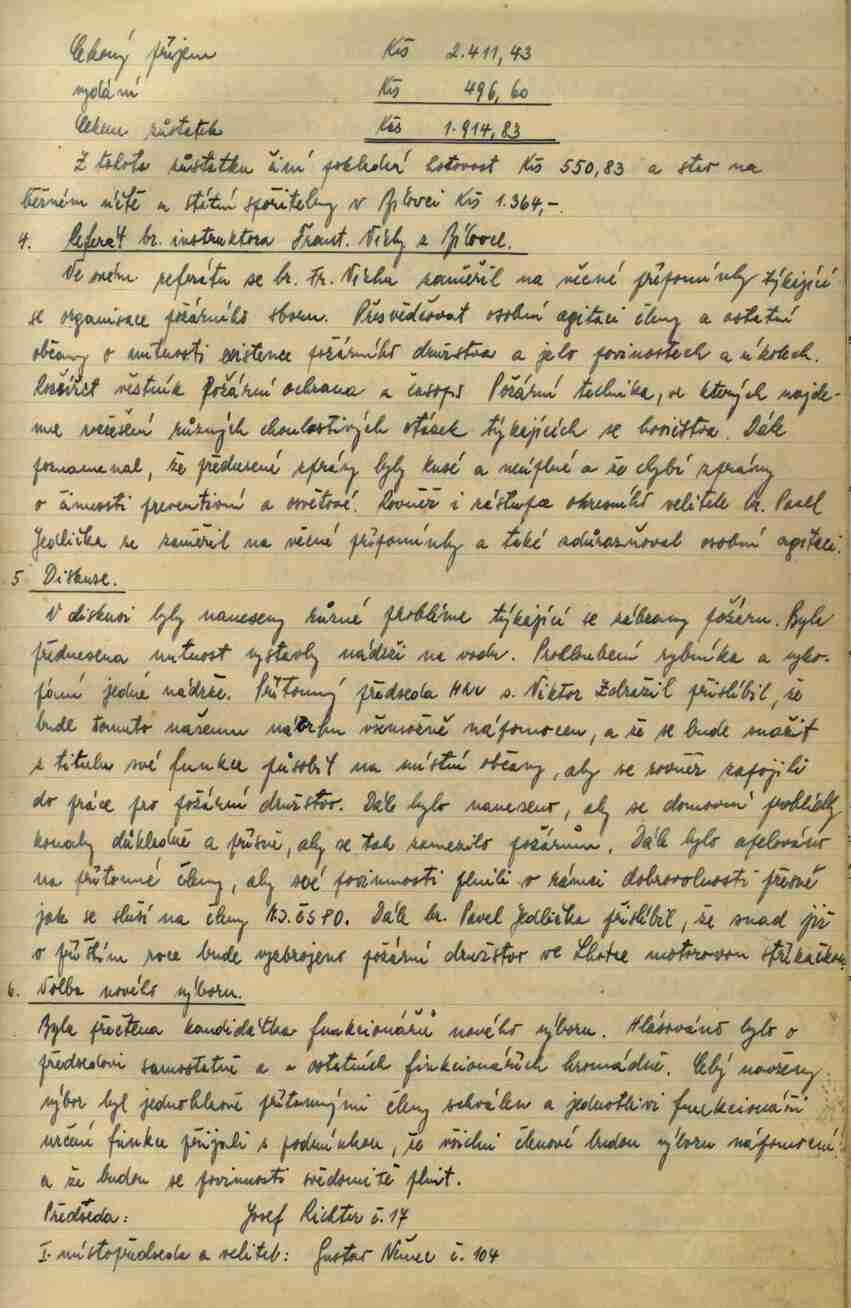 Celkový příjem Kčs 2.411,43
vydání Kčs 496,60
Celkem zůstatek Kčs 1.914,83
Z tohoto zůstatku činí pokladní hotovost Kčs 550,83 a stav na
běžném účtě u státní spořitelny v Bílovci Kčs 1.364,-.
4. Referát br. instruktora Frant. Vichy z Bílovce.
Ve svém referátu se br. Fr. Vicha zaměřil na věcné připomínky týkající
se organisace požárního sboru. Přesvědčovat osobní agitací členy a ostatní
občany o nutnosti existence požárního družstva a jeho povinostech a úkolech.
Rozšířit věstník Požární ochrana a časopis Požární technika, ve kterých najde-
me rozřešení různých choulostivých otázek týkajících se hasičstva. Dále
poznamenal, že přednesené zprávy byly kusé a neúplné a že chybí zprávy
o činnosti preventivní a osvětové. Rovněž i zástupce okresního velitele br. Pavel
Jedlička se zaměřil na věcné připomínky a také zdůrazňoval osobní agitaci.
5 Diskuse.
V diskusi byly naneseny různé problémy týkající se zábrany požáru. Byla
přednesena nutnost výstavby nádrží na vodu. Prohloubení rybníka a vyko-
pání jedné nádrže. Přítomný předseda MNV s. Viktor Zdražil přislíbil, že
bude tomuto našemu návrhu všemožně nápomocen, a že se bude snažit
z titulu své funkce působit na místní občany, aby se rovněž zapojili
do práce pro požární družstvo. Dále bylo naneseno, aby se domovní prohlídky
konaly důkladně a přísně, aby se tak zamezilo požárům. Dále bylo apelováno
na přítomné členy, aby své povinnosti plnili v rámci dobrovolnosti přesně
jak se sluší na členy M.J. ČSPO. Dále br. Pavel Jedlička přislíbil, že snad již
v příštím roce bude vyzbrojeno požární družstvo ve Lhotce motorovou stříkačkou.
6. Volba nového výboru.
Byla přečtena kandidátka funkcionářů nového výboru. Hlasováno bylo o
předsedovi samostatně a o ostatních funkcionářích hromadně. Celý navržený
výbor byl jednohlasně přítomnými členy schválen a jednotliví funkcionáři
určení funkce přijali s podmínkou, že všichni členové budou výboru nápomocni
a že budou se povinnosti svědomitě plnit.
Předseda: Josef Richter č. 17
I. místopředseda a velitel: Gustav Němec č. 104